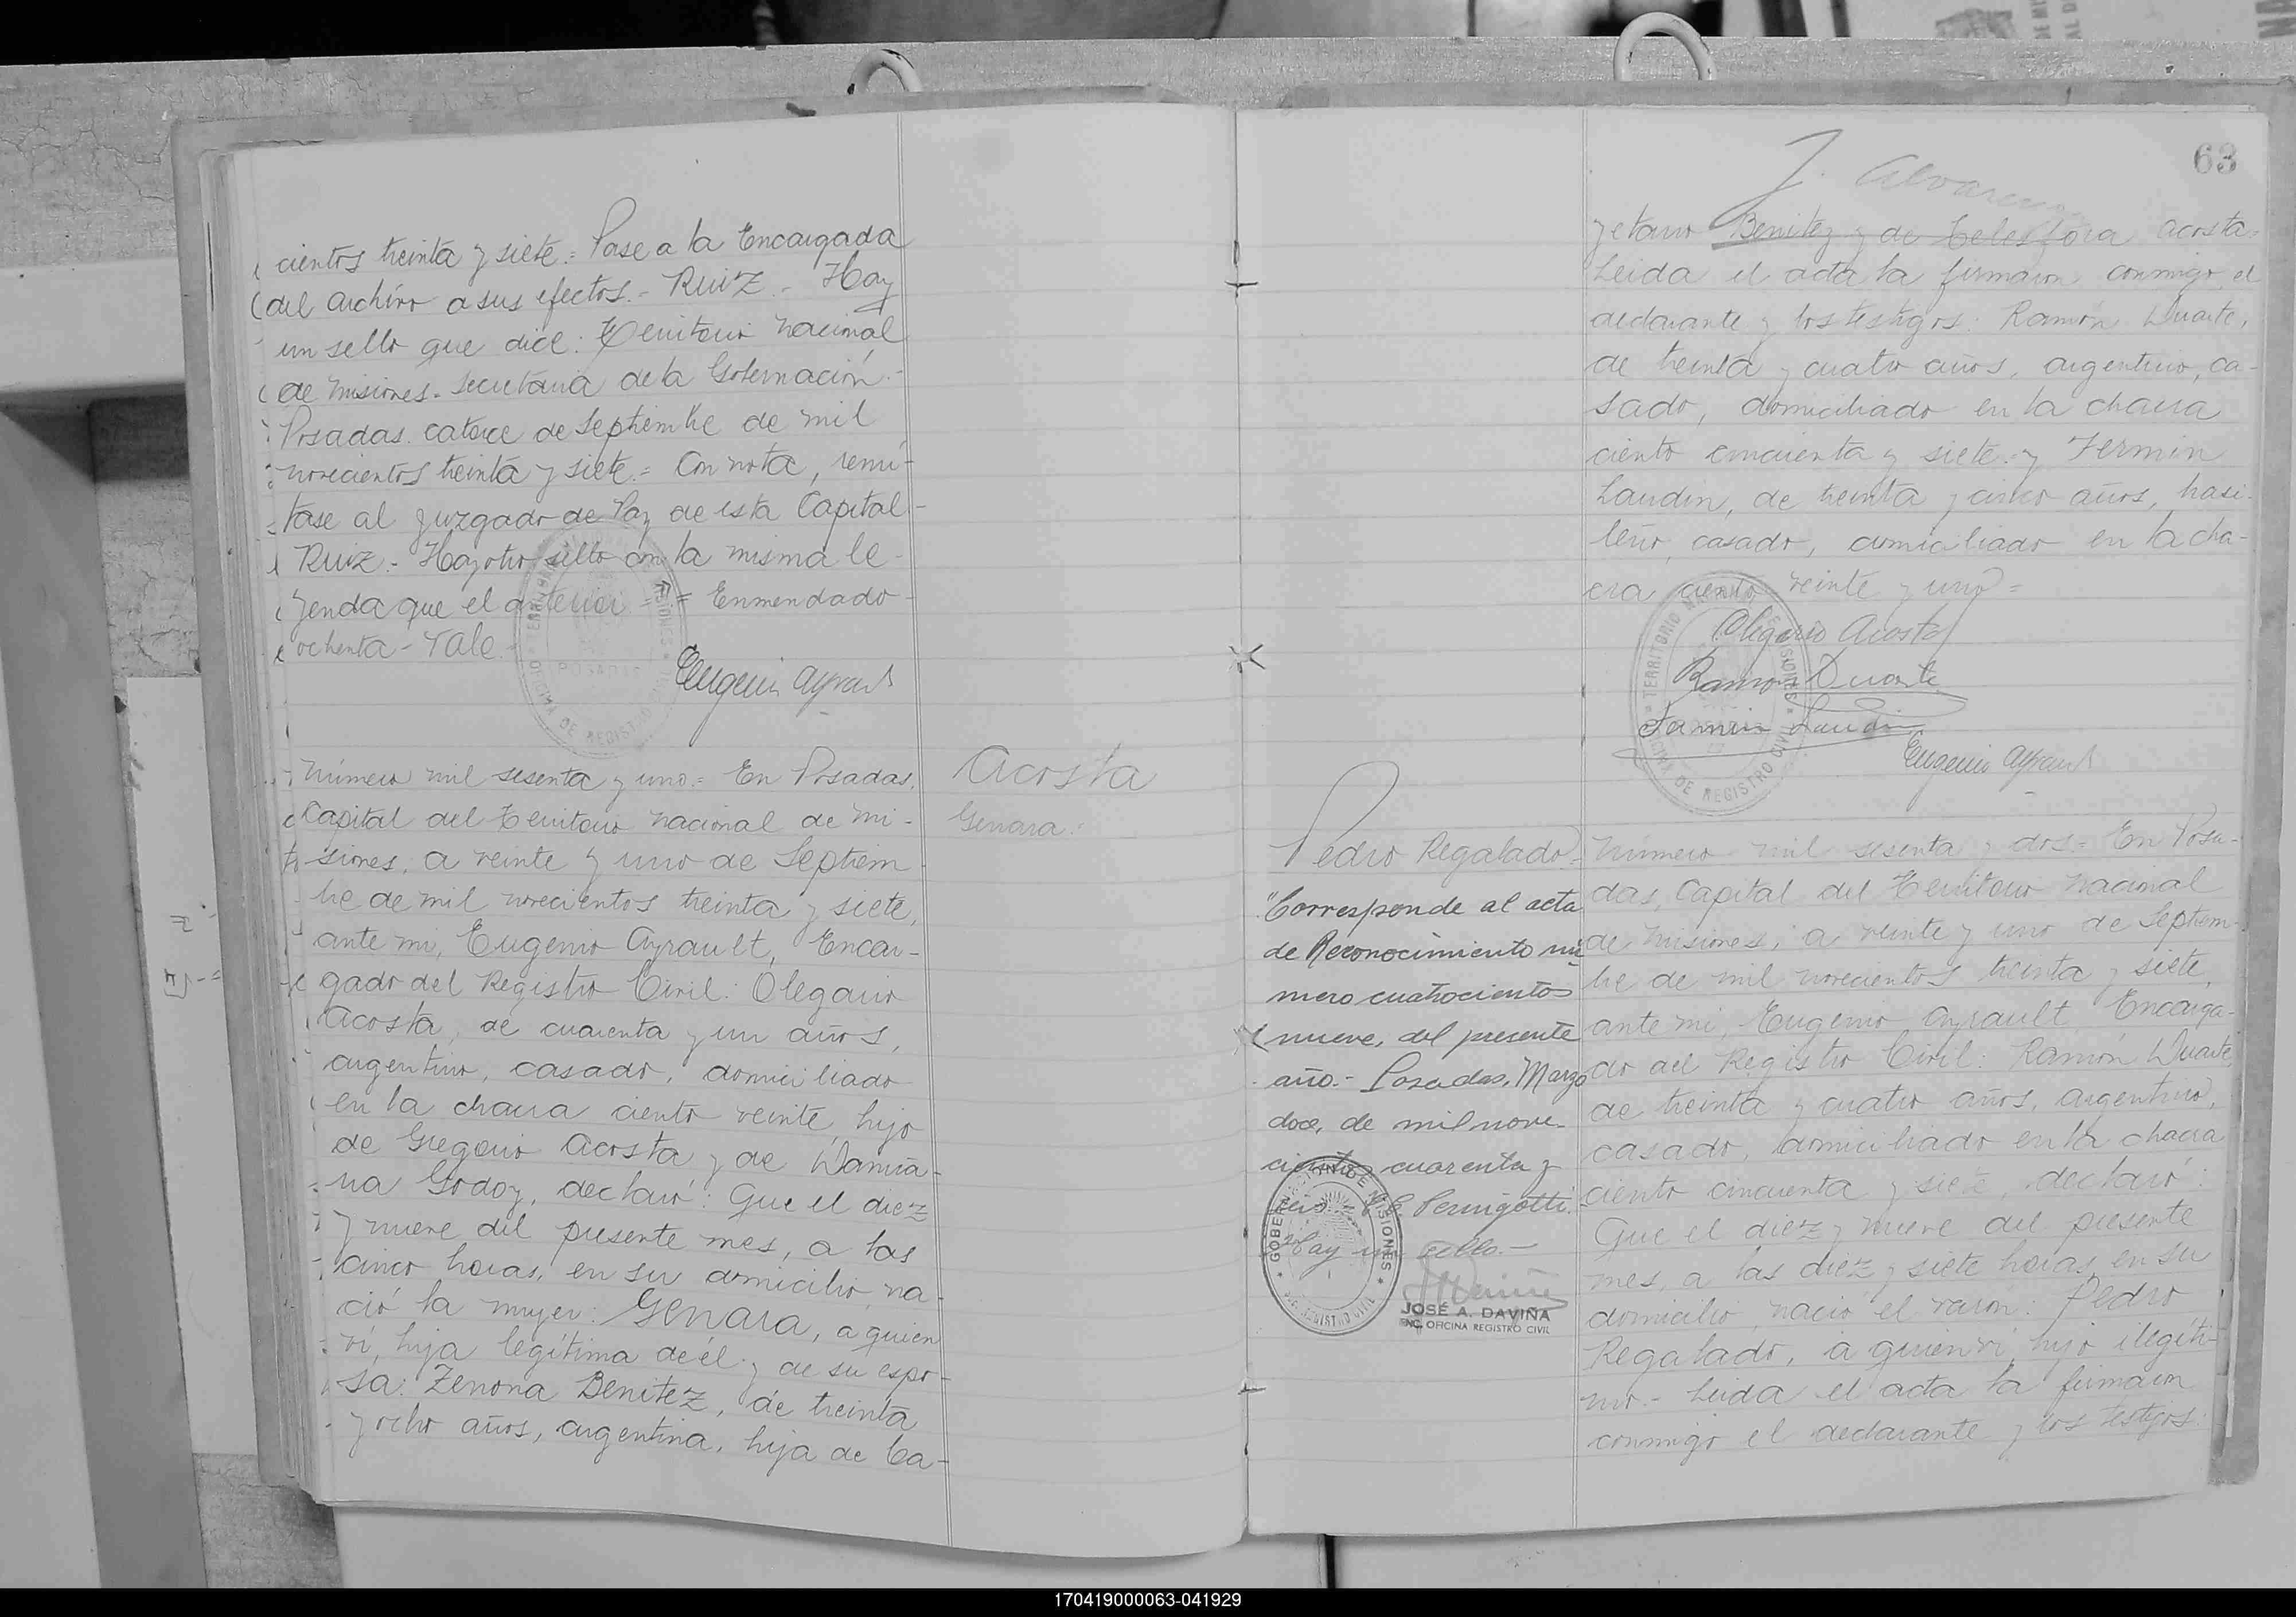 cientos treinta y siete.= Pase a la Encargada
del archivo a sus efectos.- Ruiz.- Hay
un sello que dice: Territorio nacional
de Misiones. Secretaria de la Gobernación.-
Posadas. catorce de Septiembre de mil
novecientos treinta y siete.= Con nota, remi-
tase al Juzgado de Paz de esta Capital-
Ruiz.- Hay otro sello con la misma le-
yenda que el anterior == Enmendado-
ochenta- Vale.-
Eugenio Ayrault
Acosta
Genara.-
Número mil sesenta y uno.= En Posadas,
Capital del Territorio Nacional de Mi-
siones, a veinte y uno de Septiem-
bre de mil novecientos treinta y siete,
ante mi, Eugenio Ayrault, Encar-
gado del Registro Civil: Olegario
Acosta, de cuarenta y un años,
argentino, casado, domiciliado
en la chacra ciento veinte, hijo
de Gregorio Acosta y de Damia-
na Godoy, declaró: Que el diez
y nueve del presente mes, a las
cinco horas, en su domicilio, na-
ció la mujer: Genara, a quien
vi, hija legítima de él y de su espo-
sa: Zenona Benitez, de treinta
y ocho años, argentina, hija de Ca-
63
J. Alvarenga
yetano Benitez y de Telesfora Acosta.
Leida el acta la firmaron conmigo el
declarante y los testigos: Ramón Duarte,
de treinta y cuatro años, argentino, ca-
sado, domiciliado en la chacra
ciento cincuenta y siete y Fermin
Laudin, de treinta y cinco años, brasi-
leño, casado, domiciliado en la cha-
cra ciento veinte y uno=
Olegario Acosta
Ramon Duarte
Fermin Laudin
Eugenio Ayrault
Pedro Regalado.-
"Corresponde al acta
de Reconocimiento nú-
mero cuatrocientos
nueve, del presente
año.- Posadas, Marzo
doce, de mil nove-
cientos cuarenta y
E. Pernigotti.
Hay un sello.-
GOBERNACION DE MISIONES
REGISTRO CIVIL
JOSÉ A. DAVIÑA
ENC. OFICINA REGISTRO CIVIL
Número mil sesenta y dos.= En Posa-
das, Capital del Territorio Nacional
de Misiones, a veinte y uno de Septiem-
bre de mil novecientos treinta y siete,
ante mi, Eugenio Ayrault Encarga-
do del Registro Civil: Ramón Duarte,
de treinta y cuatro años, argentino,
casado, domiciliado en la chacra
ciento cincuenta y siete, declaró:
Que el diez y nueve del presente
mes, a las diez y siete horas, en su
domicilio, nació el varón: Pedro
Regalado, a quien vi, hijo ilegíti-
mo.- Leida el acta la firmaron
conmigo el declarante y los testigos:
170419000063-041929